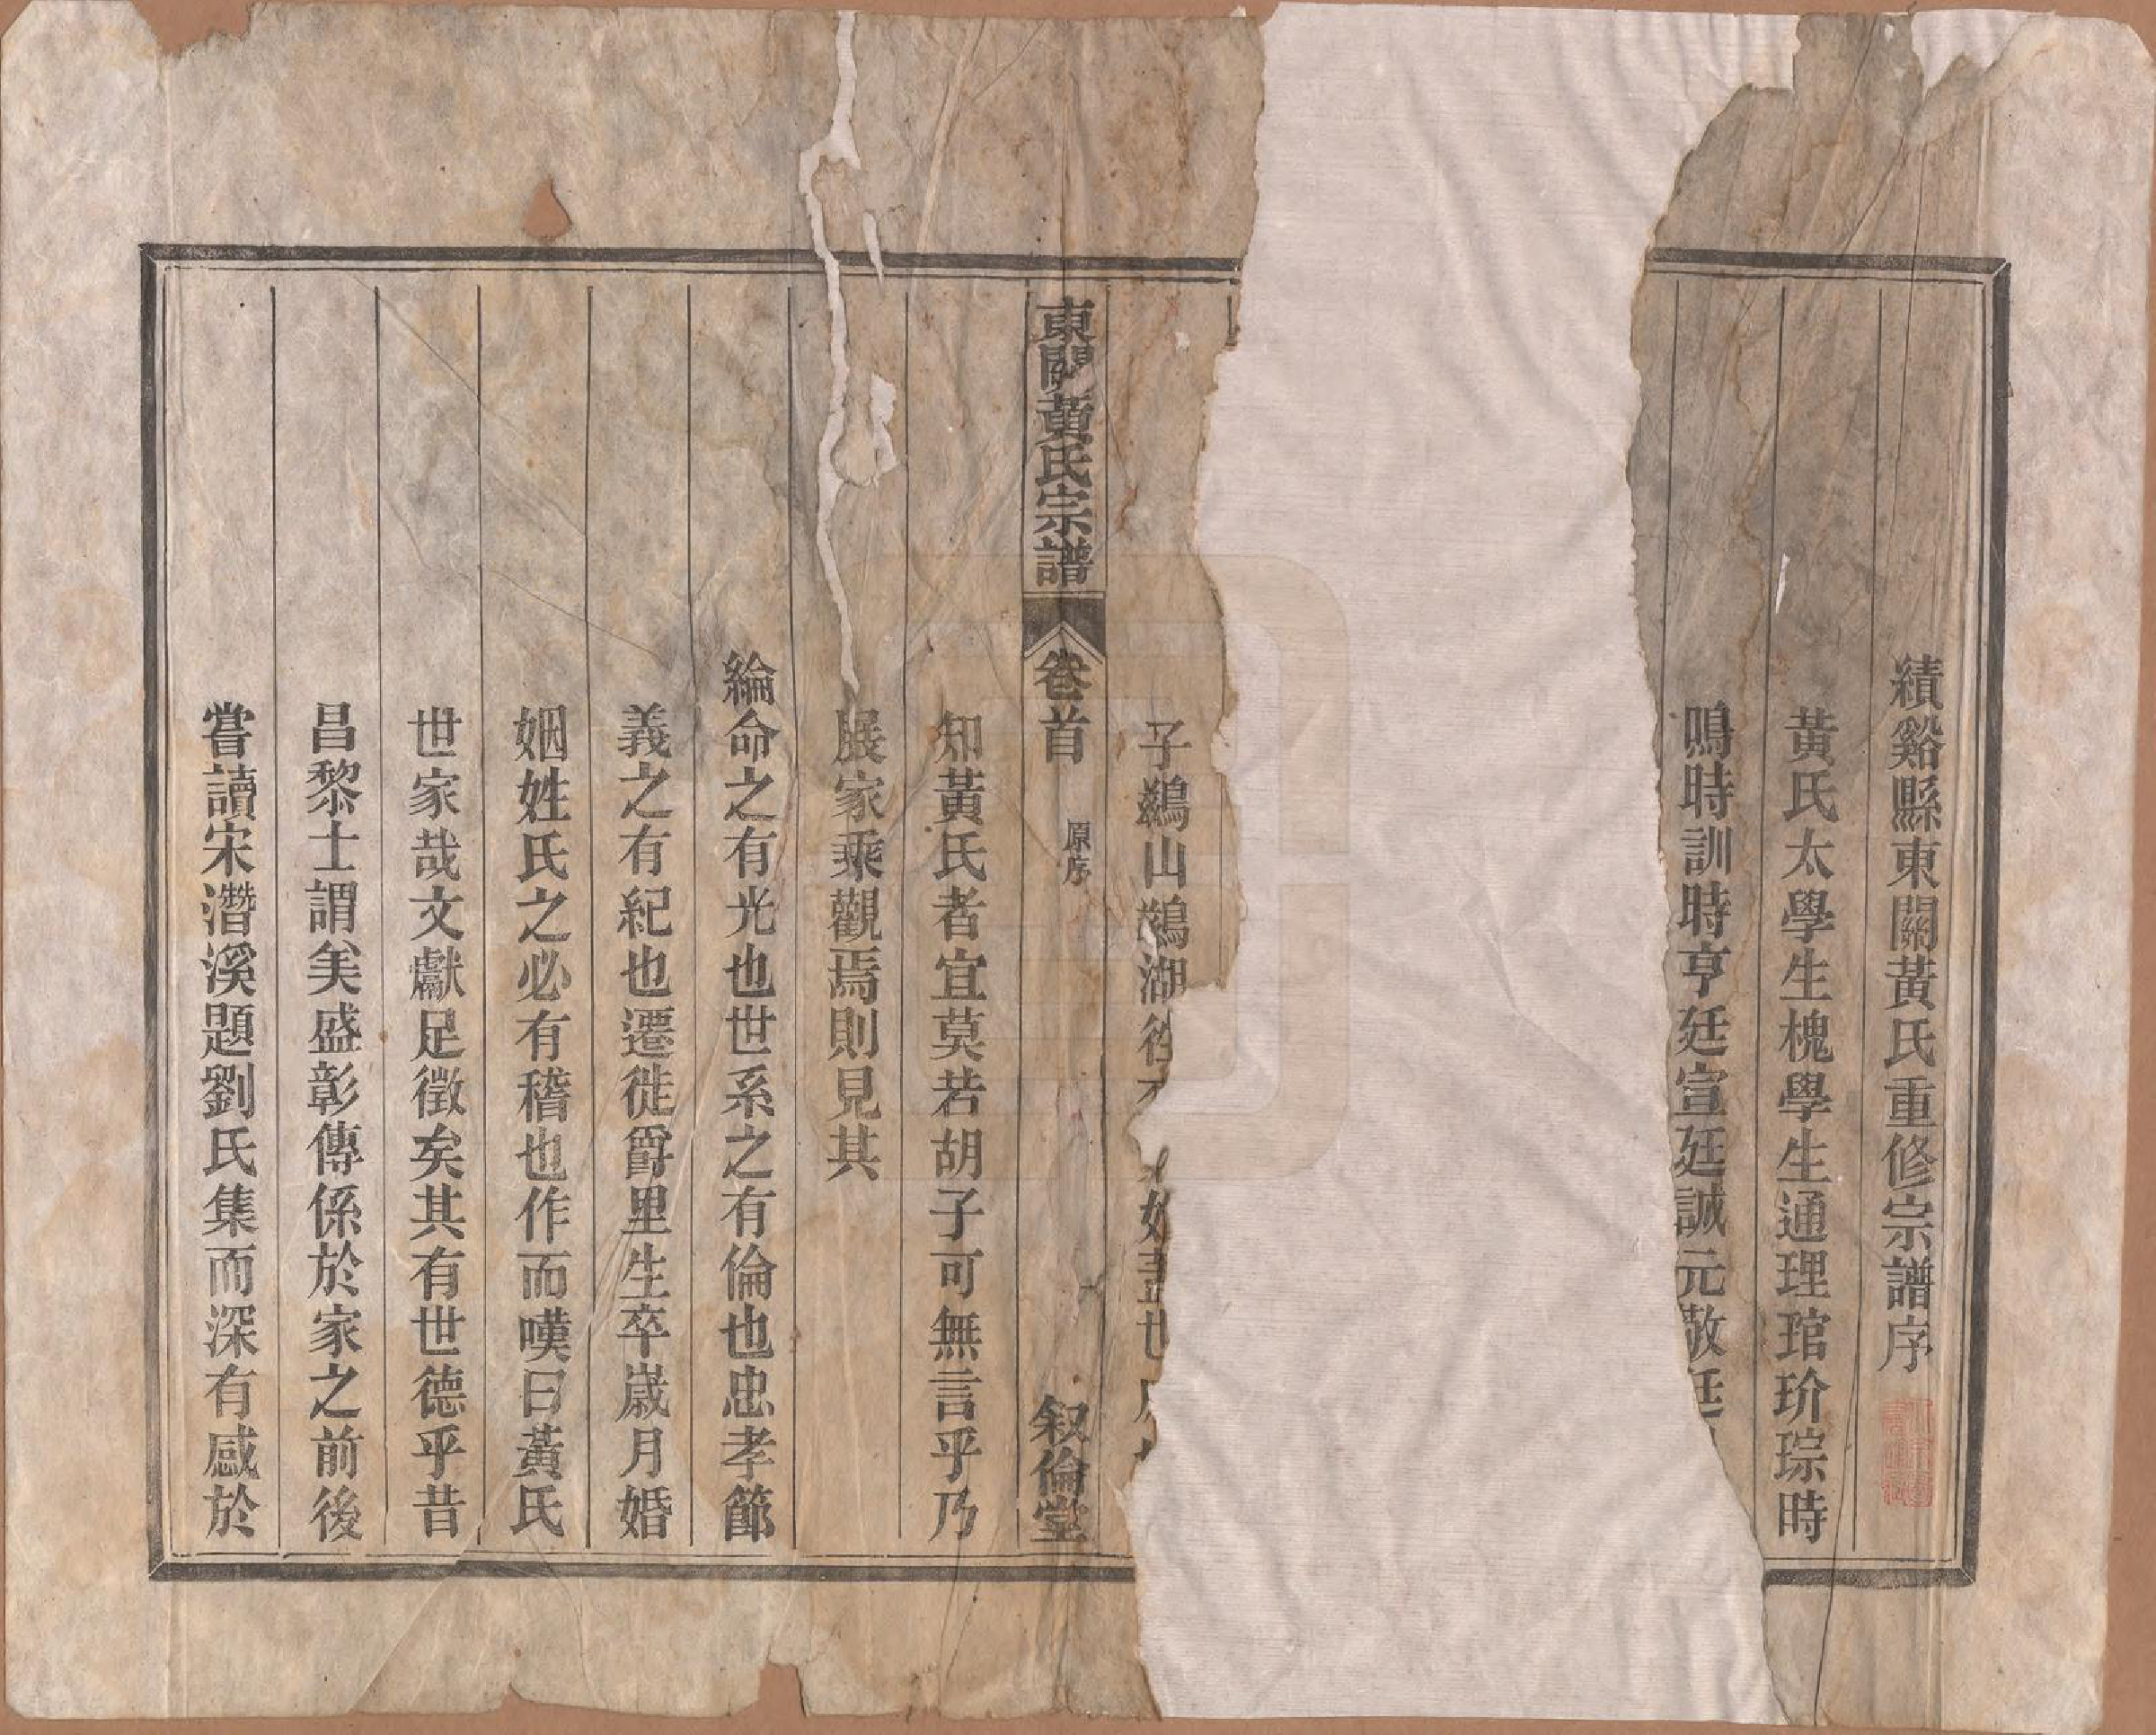 績谿縣東關黃氏重修宗譜序
黃氏太學生槐學生通理琯玠琮時
鳴時訓時亨廷宣廷誠元敬廷
子鷀山鷀湖徃
如
世
東關黃氏宗譜 卷首 原序 叙倫堂
知黃氏者宜莫若胡子可無言乎乃
展家乘觀焉則見其
綸命之有光也世系之有倫也忠孝節
義之有紀也遷徙爵里生卒歲月婚
姻姓氏之必有稽也作而嘆曰黃氏
世家哉文獻足徵矣其有世德乎昔
昌黎士謂美盛彰傳係於家之前後
嘗讀宋濳溪題劉氏集而深有感於